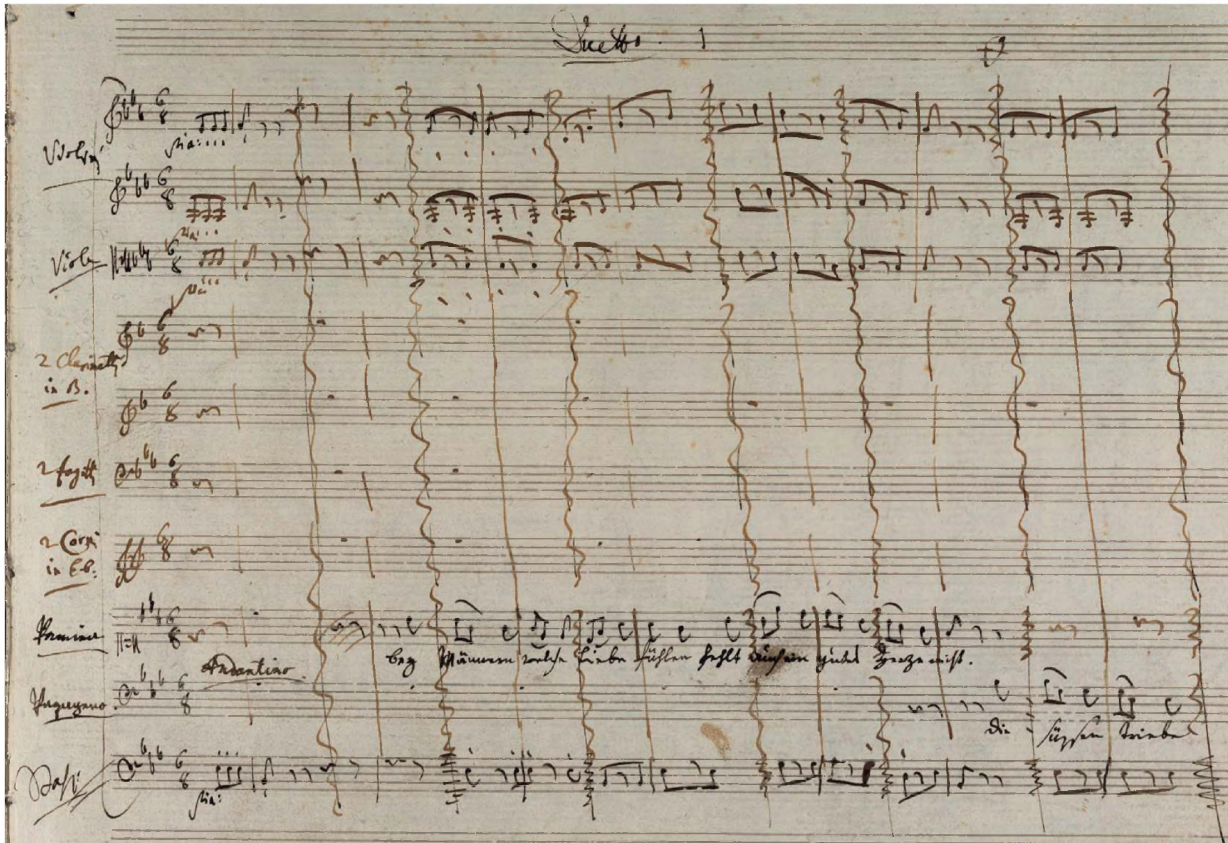 Duetto. 1
Violini
pia:
pia:
Viole
pia:
2 Clarinetti
in B.
2 fagotti
2 Corni
in Eb.
Pamina
bey Männern welche Liebe fühlen fehlt auch ein gutes Herze nicht.
Andantino.
Papageno
die süssen triebe
Bassi
pia: